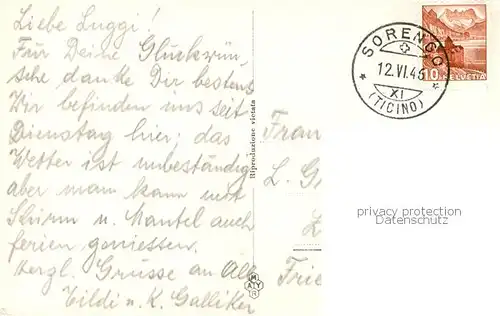 Liebe Luggi!
Für Deine Glückwün-
sche danke Dir bestens
Wir befinden uns seit
Dienstag hier; das
Wetter ist unbeständig
aber man kann mit
Schirm u. Mantel auch
ferien geniessen.
Herzl. Grüsse an Alle
Tildi u. K. Galliker
Riproduzione vietata
MATYR
SORENGO
12.VI.45
XI
(TICINO)
10 HELVETIA
Frau
L. G
Z
Frie
privacy protection
Datenschutz